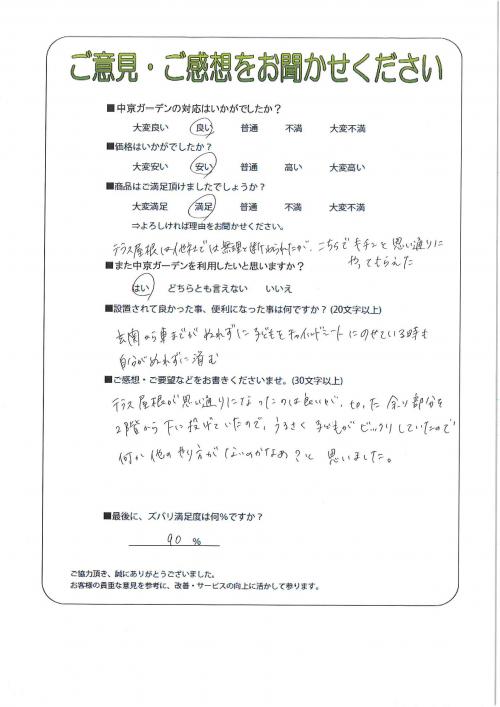 ご意見・ご感想をお聞かせください
■中京ガーデンの対応はいかがでしたか？
大変良い 良い 普通 不満 大変不満
■価格はいかがでしたか？
大変安い 安い 普通 高い 大変高い
■商品はご満足頂けましたでしょうか？
大変満足 満足 普通 不満 大変不満
⇒よろしければ理由をお聞かせください。
テラス屋根は他社では無理と断わられたが、こちらでキチンと思い通りに
やってもらえた
■また中京ガーデンを利用したいと思いますか？
はい どちらとも言えない いいえ
■設置されて良かった事、便利になった事は何ですか？(20文字以上)
玄関から車までがぬれずに子どもをチャイルドシートにのせている時も
自分がぬれずに済む
■ご感想・ご要望などをお書きくださいませ。(30文字以上)
テラス屋根が思い通りになったのは良いが、切った余り部分を
2階から下に投げていたので、うるさく子どもがビックリしていたので
何か他のやり方がないのかなぁ？と思いました。
■最後に、ズバリ満足度は何%ですか？
90 %
ご協力頂き、誠にありがとうございました。
お客様の貴重な意見を参考に、改善・サービスの向上に活かして参ります。